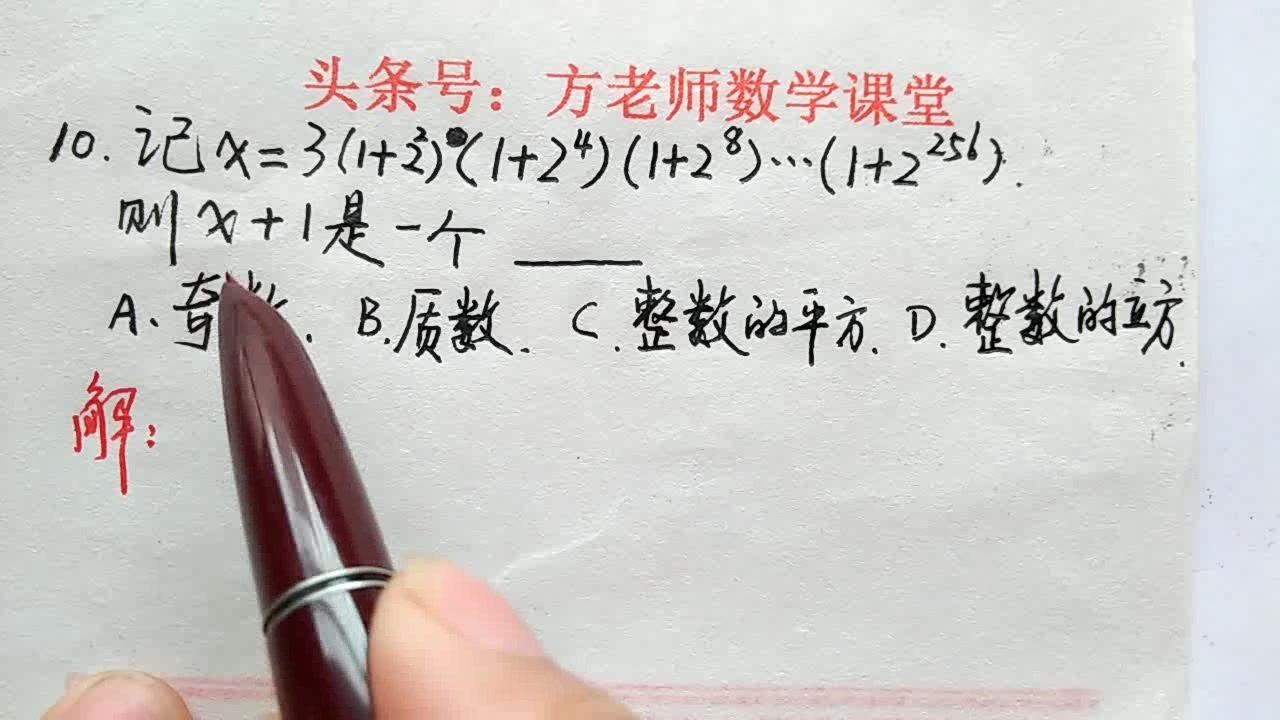 头条号：方老师数学课堂
10. 记 x=3(1+2²)(1+2⁴)(1+2⁸)⋯(1+2²⁵⁶).
则 x+1是一个 ____
A. 奇数. B.质数. C.整数的平方. D.整数的立方.
解: